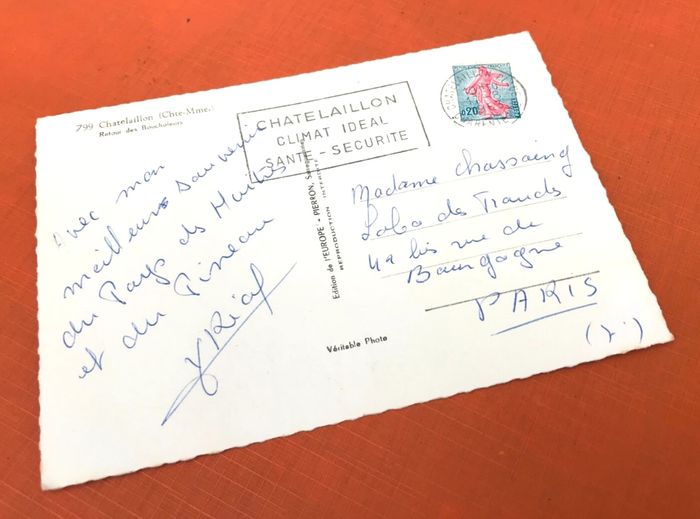 799 Chatelaillon (Chte-Mme.)
Retour des Bouchoteurs
CHATELAILLON
CLIMAT IDEAL
SANTÉ - SECURITE
0,20
Avec mon
meilleur souvenir
du Pays des Huîtres
et du Pineau
Edition de l'EUROPE - PIERRON,
REPRODUCTION INTERDITE
Véritable Photo
Madame Chassaing
Labo des Fraudes
42 bis rue de
Bourgogne
PARIS
(7e)